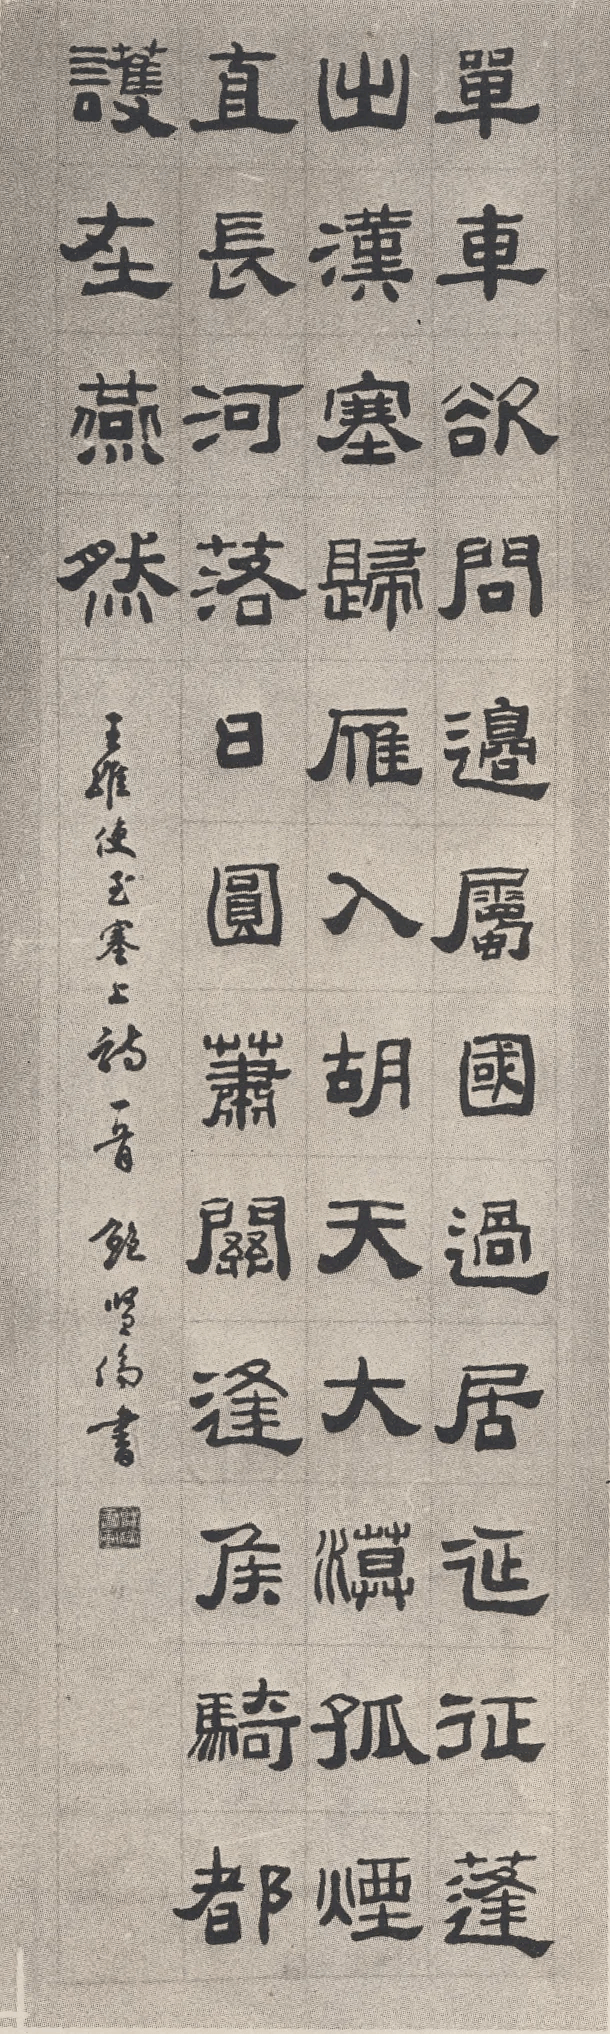 單車欲問邊屬國過居延征蓬
出漢塞歸雁入胡天大漠孤煙
直長河落日圓蕭關逢矦騎都
護在燕然
王維使至塞上詩一首 鮑賢倫書